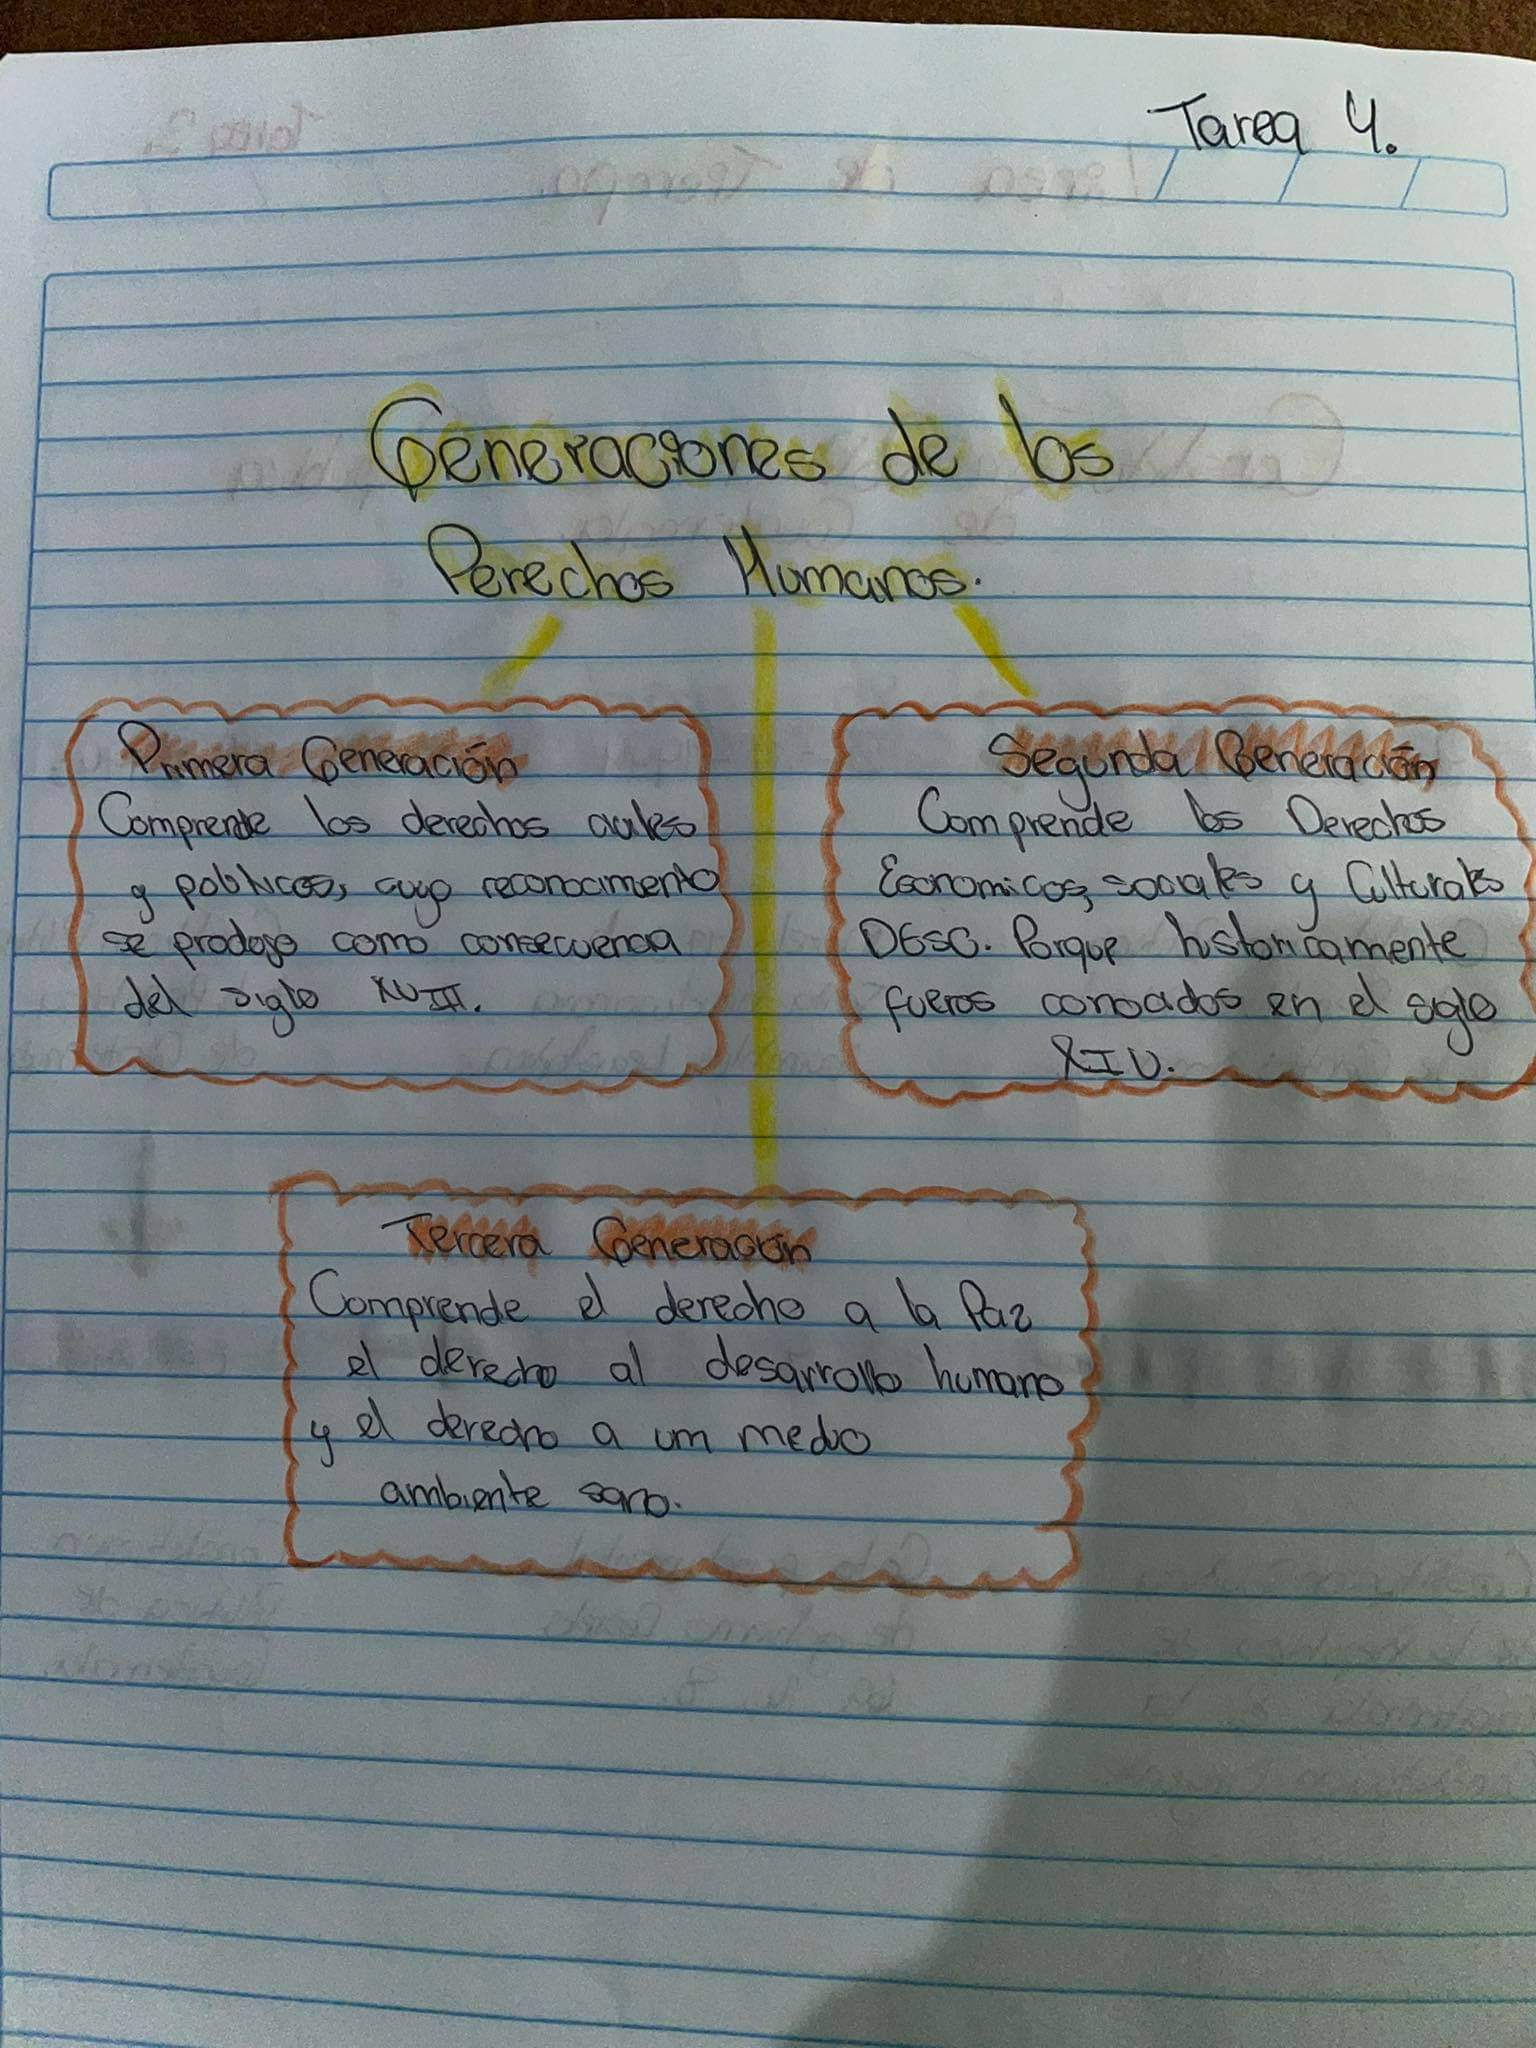 Tarea 4.
Generaciones de los
Derechos Humanos.
Primera Generación
Comprende los derechos civiles
y politicos, cuyo reconocimento
se produjo como consecuencia
del siglo XVIII.
Segunda Generación
Comprende los Derechos
Economicos, sociales y Culturales
DESC. Porque historicamente
fueros conocidos en el siglo
XIV.
Tercera Generación
Comprende el derecho a la Paz
el derecho al desarrollo humano
y el derecho a um medio
ambiente sano.